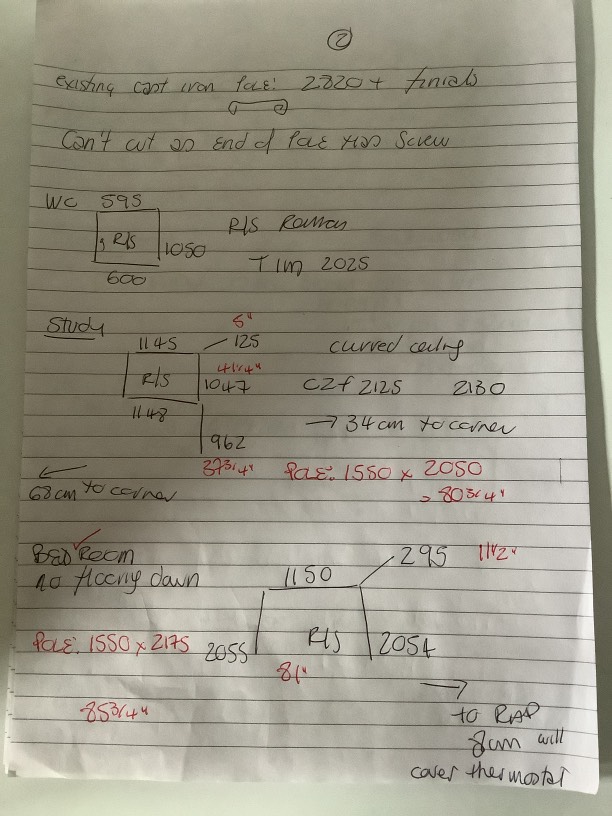 2
existing cast iron Pole: 2820 + finials
Can't cut as end of Pole has Screw
WC 595
R/S 1050
600
R/S Roman
Tim 2025
Study
1145
5"
125
R/S
41 1/4"
1047
1148
962
37 3/4"
curved ceiling
C2f 2125 2130
→ 34 cm to corner
Pole: 1550 x 2050
80 3/4"
←
68 cm to corner
BED Room
no flooring down
1150
295 11 1/2"
Pole: 1550 x 2175
2055 R/S 2054
81"
85 3/4"
→
to RAD
8cm will
cover thermostat